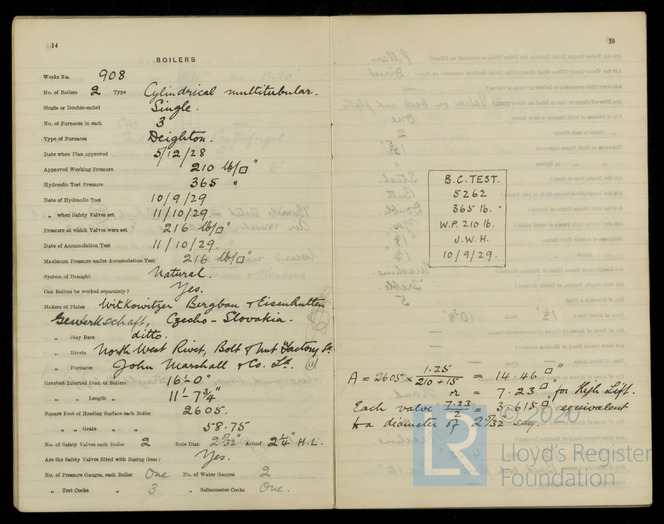 14
BOILERS
Works No. 908
No. of Boilers 2 Type Cylindrical multitubular.
Single or Double-ended Single.
No. of Furnaces in each 3
Type of Furnaces Deighton.
Date when Plan approved 5/12/28
Approved Working Pressure 210 lb/□"
Hydraulic Test Pressure 365 "
Date of Hydraulic Test 10/9/29
" when Safety Valves set 11/10/29.
Pressure at which Valves were set 216 lb/□"
Date of Accumulation Test 11/10/29.
Maximum Pressure under Accumulation Test 216 lb/□"
System of Draught Natural.
Can Boilers be worked separately? Yes.
Makers of Plates Witkowitzer Bergbau & Eisenhutten
Gewerkschaft, Czecho-Slovakia.
" Stay Bars ditto.
" Rivets North West Rivet, Bolt & Nut Factory Ld.
" Furnaces John Marshall & Co. Ld.
Greatest Internal Diam. of Boilers 16'-0"
" Length " 11'-7¾"
Square Feet of Heating Surface each Boiler 2605.
" " Grate " " 58.75
No. of Safety Valves each Boiler 2 Rule Diam. 2 5/32" Actual 2¼" H.L.
Are the Safety Valves fitted with Easing Gear? Yes.
No. of Pressure Gauges, each Boiler One No. of Water Gauges 2
" Test Cocks " 3 " Salinometer Cocks One.
15
B.C. TEST.
5262
365 lb.
W.P. 210 lb.
J.W.H.
10/9/29.
A = 2605 × 1.25/210+15 = 14.46 □"
= 7.23 □" for High Lift.
Each valve 7.23/2 = 3.615 □" equivalent
to a diameter of 2 5/32 say.
© 2020
LR
Lloyd's Register
Foundation